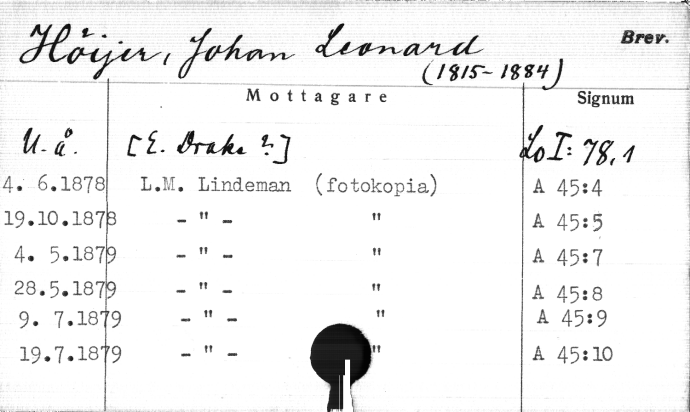 Höijer, Johan Leonard Brev.
(1815-1884)
Mottagare Signum
U.å. [E. Drake?] Lo I: 78,1
4. 6.1878 L.M. Lindeman (fotokopia) A 45:4
19.10.1878 - " - " A 45:5
4. 5.1879 - " - " A 45:7
28.5.1879 - " - " A 45:8
9. 7.1879 - " - " A 45:9
19.7.1879 - " - " A 45:10